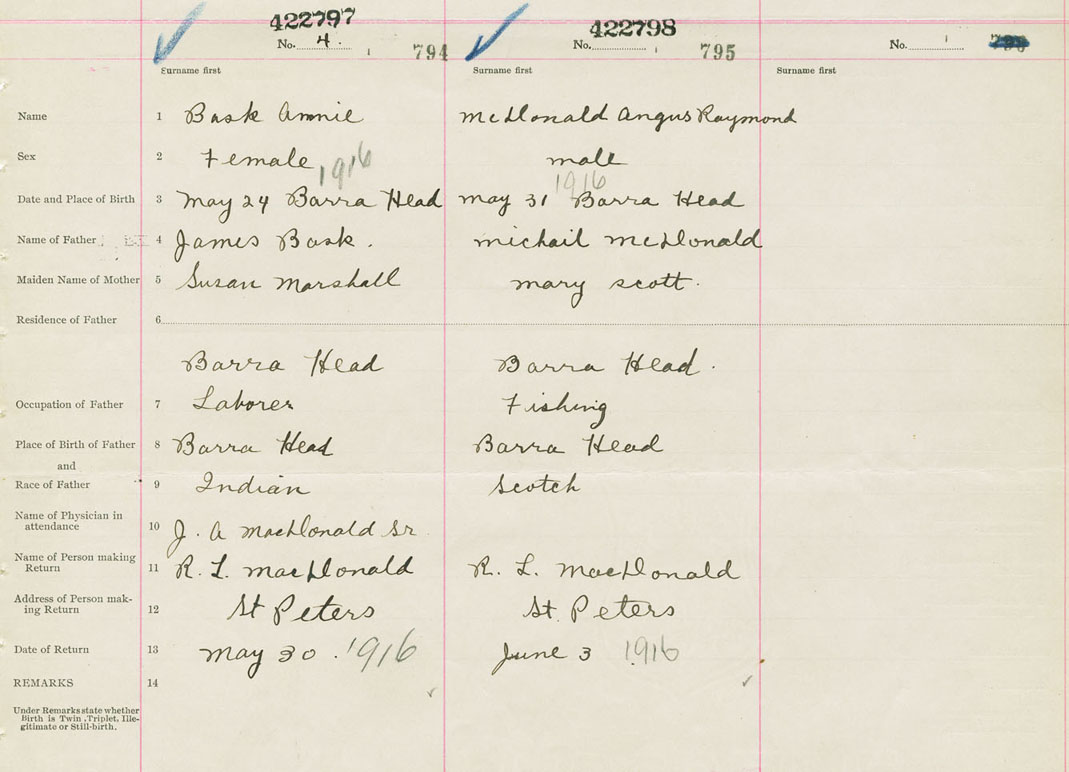 422797 422798
No. 4. 794 No. 795 No.
Surname first Surname first Surname first
Name 1 Bask Annie McDonald Angus Raymond
Sex 2 Female male
1916 1916
Date and Place of Birth 3 May 24 Barra Head may 31 Barra Head
Name of Father 4 James Bask. michail McDonald
Maiden Name of Mother 5 Susan Marshall mary scott.
Residence of Father 6
Barra Head Barra Head.
Occupation of Father 7 Laborer Fishing
Place of Birth of Father 8 Barra Head Barra Head
and
Race of Father 9 Indian Scotch
Name of Physician in
attendance 10 J. A MacDonald Sr
Name of Person making
Return 11 R. L. MacDonald R. L. MacDonald
Address of Person mak-
ing Return 12 St Peters St. Peters
Date of Return 13 May 30. 1916 June 3 1916
REMARKS 14
Under Remarks state whether
Birth is Twin, Triplet, Ille-
gitimate or Still-birth.